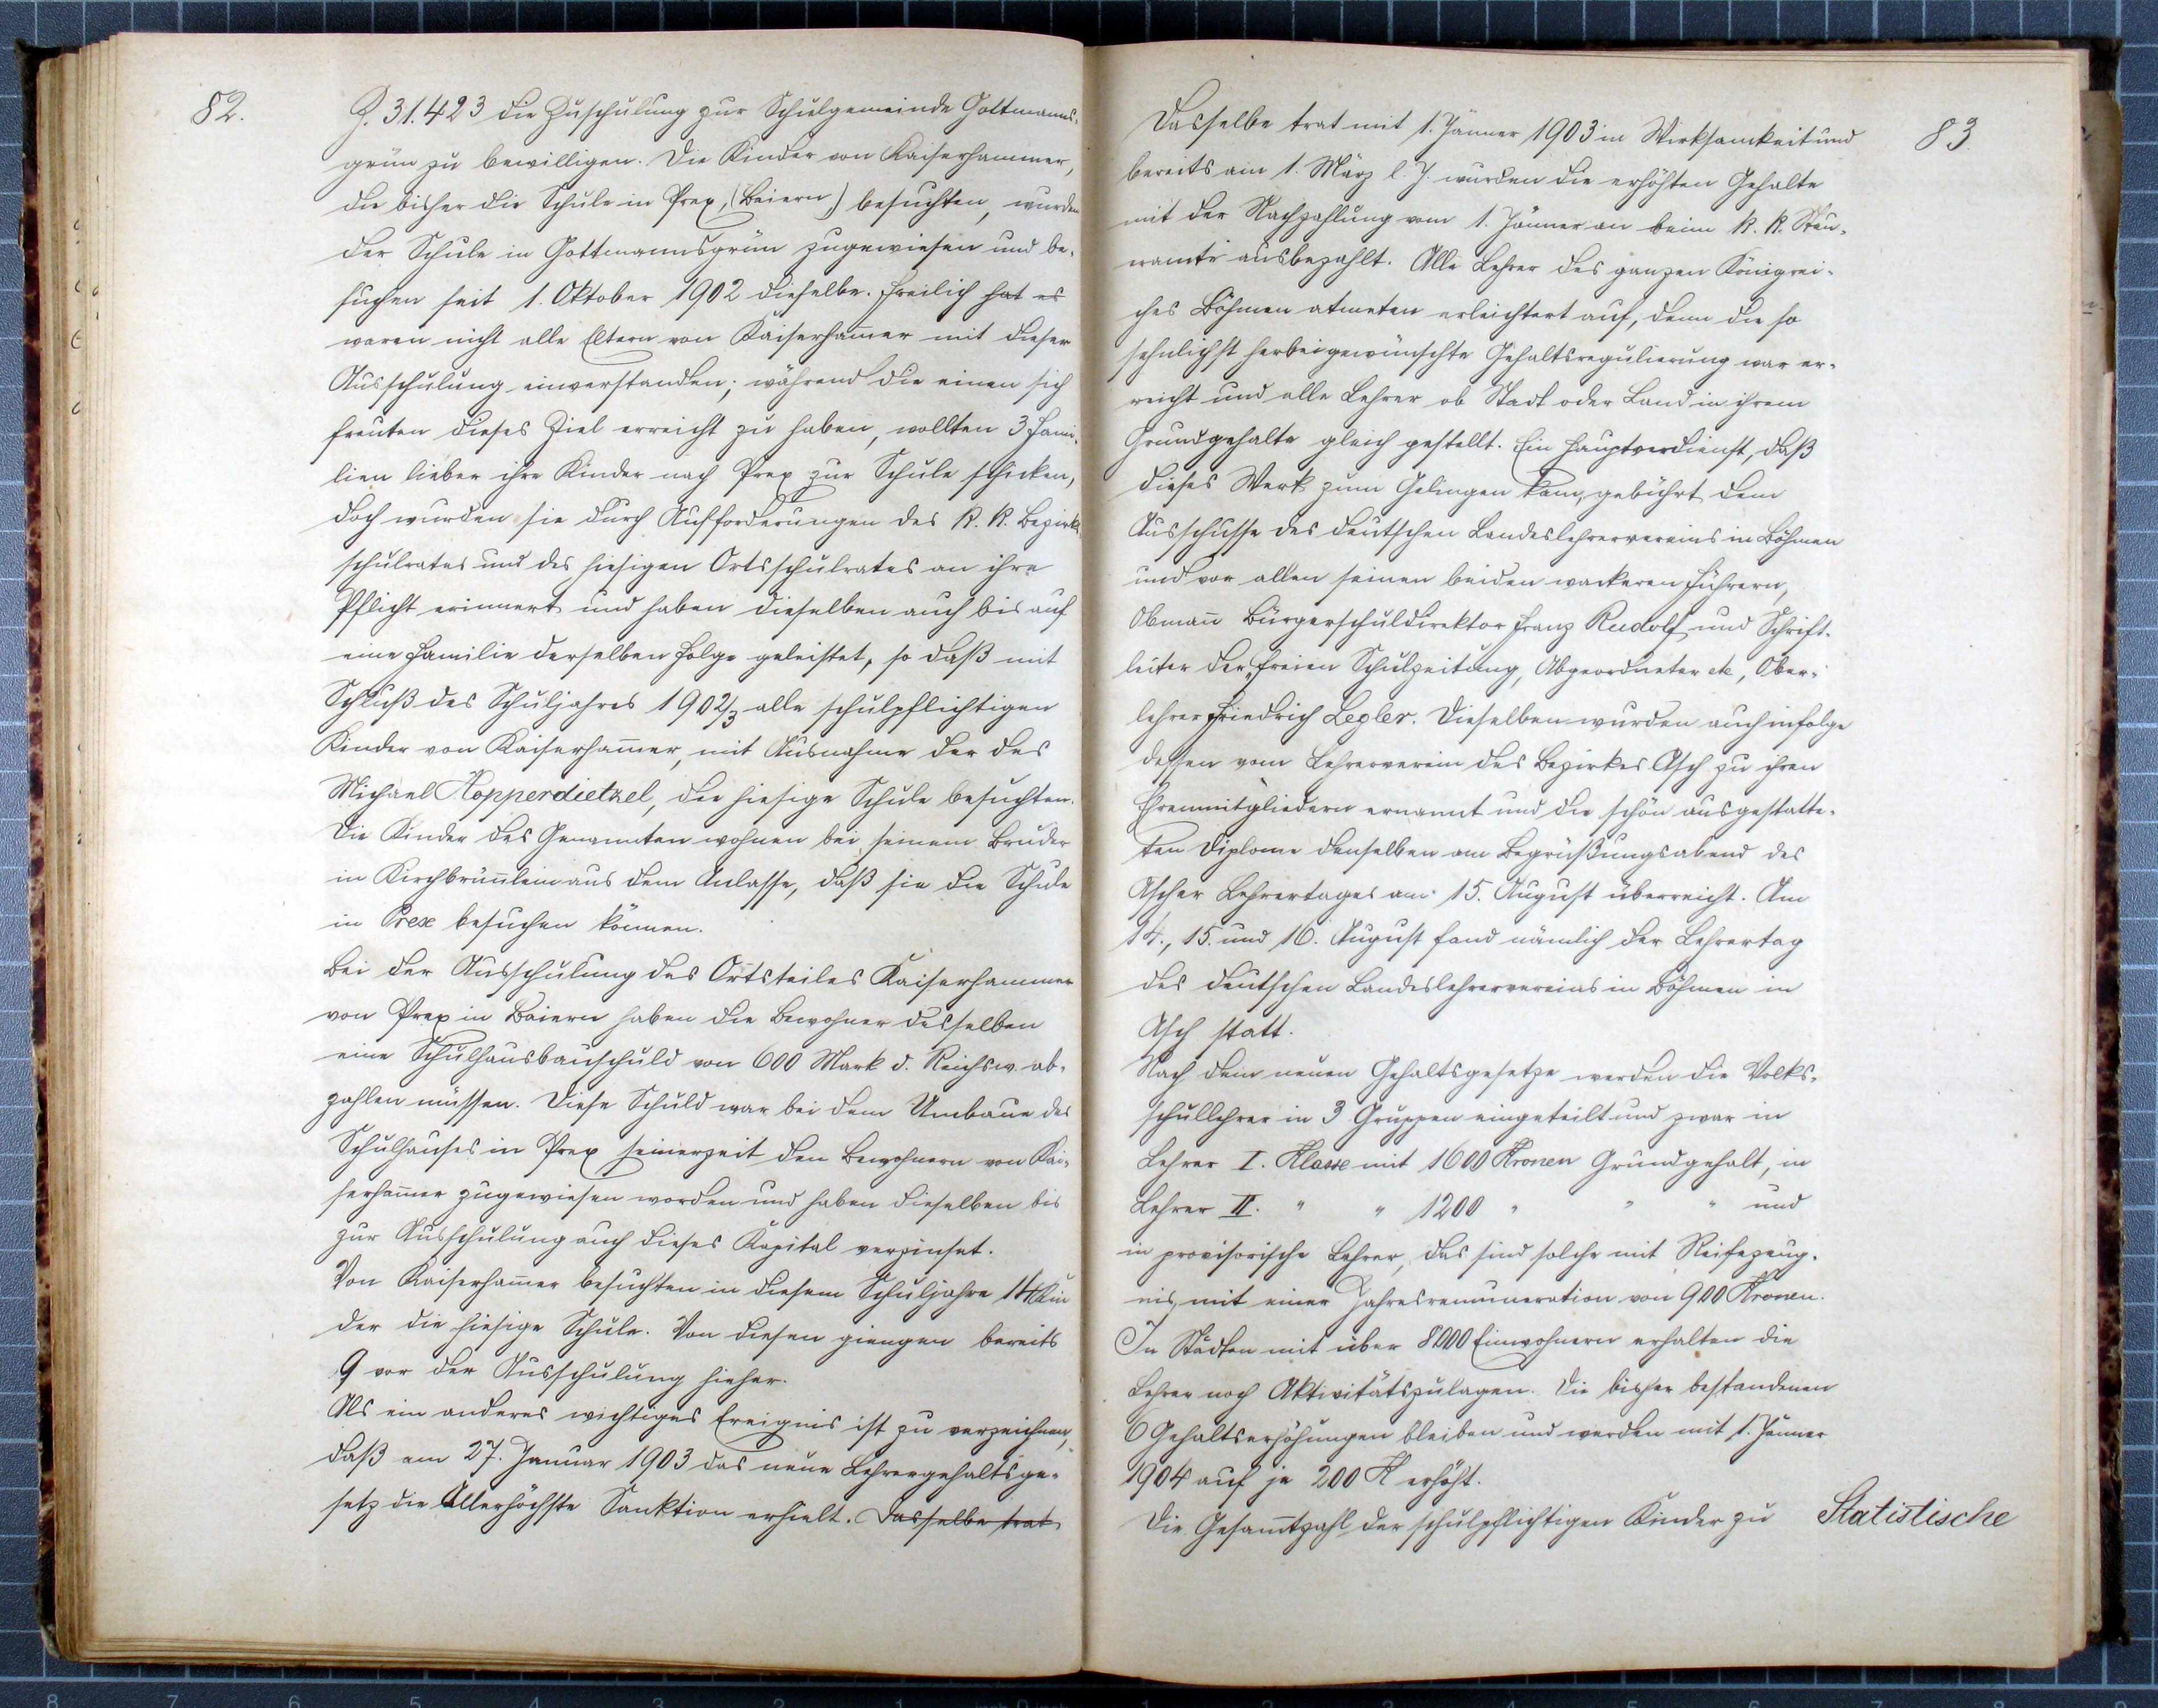 82.
Z. 31.423 die Zuschulung zur Schulgemeinde Gottmanns-
grün zu bewilligen. Die Kinder von Kaiserhammer,
die bisher die Schule in Prex, (Beiern) besuchten, wurden
der Schule in Gottmannsgrün zugewiesen und be-
suchen seit 1. Oktober 1902 dieselbe. Freilich hat es
waren nicht alle Eltern von Kaiserham̅er mit dieser
Ausschulung einverstanden; während die einen sich
freuten dieses Ziel erreicht zu haben, wollten 3 Fami-
lien lieber ihre Kinder nach Prex zur Schule schicken,
doch wurden sie durch Aufforderungen des k. k. Bezirks-
schulrates und des hiesigen Ortsschulrates an ihre
Pflicht erinnert und haben dieselben auch bis auf
eine Familie derselben Folge geleistet, so daß mit
Schluß des Schuljahres 1902/3 alle schulpflichtigen
Kinder von Kaiserham̅er, mit Ausnahme der des
Michael Hopperdietzel, die hiesige Schule besuchten.
Die Kinder des Genannten wohnen bei seinem Bruder
in Kirchbrün̅lein aus dem Anlasse, daß sie die Schule
in Prex besuchen können.
Bei der Ausschulung des Ortsteiles Kaiserhammer
von Prex in Baiern haben die Bewohner desselben
eine Schulhausbauschuld von 600 Mark d. Reichsw. ab-
zahlen müssen. Diese Schuld war bei dem Umbaue des
Schulhauses in Prex seinerzeit den Bewohnern von Kai-
serham̅er zugewiesen worden und haben dieselben bis
zur Ausschulung auch dieses Kapital verzinset.
Von Kaiserham̅er besuchten in diesem Schuljahre 14 Kin
der die hiesige Schule. Von diesen giengen bereits
9 vor der Ausschulung hieher.
Als ein anderes wichtiges Ereignis ist zu verzeichnen,
daß am 27. Januar 1903 das neue Lehrergehaltsge-
setz die Allerhöchste Sanktion erhielt. Dasselbe trat
83.
Dasselbe trat mit 1. Jänner 1903 in Wirksamkeit und
bereits am 1. März l. J. wurden die erhöhten Gehalte
mit der Nachzahlung vom 1. Jänner an beim k. k. Steu-
eramte ausbezahlt. Alle Lehrer des ganzen Königrei-
ches Böhmen atmeten erleichtert auf, denn die so
sehnlichst herbeigewünschte Gehaltsregulierung war er-
reicht und alle Lehrer ob Stadt oder Land in ihrem
Grundgehalte gleich gestellt. Ein Hauptverdienst, daß
dieses Werk zum Gelingen kam, gebührt dem
Ausschusse des deutschen Landeslehrervereins in Böhmen
und vor allen seinen beiden wackeren Führern,
Obman̅ Bürgerschuldirektor Franz Rudolf und Schrift-
leiter der "freien Schulzeitung, Abgeordneter etc, Ober-
lehrer Friedrich Legler. Dieselben wurden auch infolge
dessen vom Lehrerverein des Bezirkes Asch zu ihren
Ehrenmitgliedern ernannt und die schön ausgestatte-
ten Diplome denselben am Begrüßungsabend des
Ascher Lehrertages am 15. August überreicht. Am
14., 15. und 16. August fand nämlich der Lehrertag
des deutschen Landeslehrervereins in Böhmen in
Asch statt.
Nach dem neuen Gehaltsgesetze werden die Volks-
schullehrer in 3 Gruppen eingeteilt und zwar in
Lehrer I. Klasse mit 1600 Kronen Grundgehalt, in
Lehrer II. " " 1200 " " " und
in provisorische Lehrer, das sind solche mit Reifezeug-
nis, mit einer Jahresremuneration von 900 Kronen.
In Städten mit über 8000 Einwohnern erhalten die
Lehrer noch Aktivitätszulagen. Die bisher bestandenen
6 Gehaltserhöhungen bleiben und werden mit 1. Jänner
1904 auf je 200 K erhöht.
Die Gesam̅tzahl der schulpflichtigen Kinder zu
Statistische